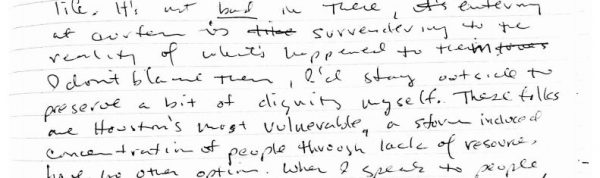 life. It's not bad in there, it's entering
at curfew is surrendering to the
reality of what's happened to them
I don't blame them, I'd stay outside to
preserve a bit of dignity myself. These folks
are Houston's most vulnerable, a storm induced
concentration of people through lack of resources
have no other option. When I speak to people,